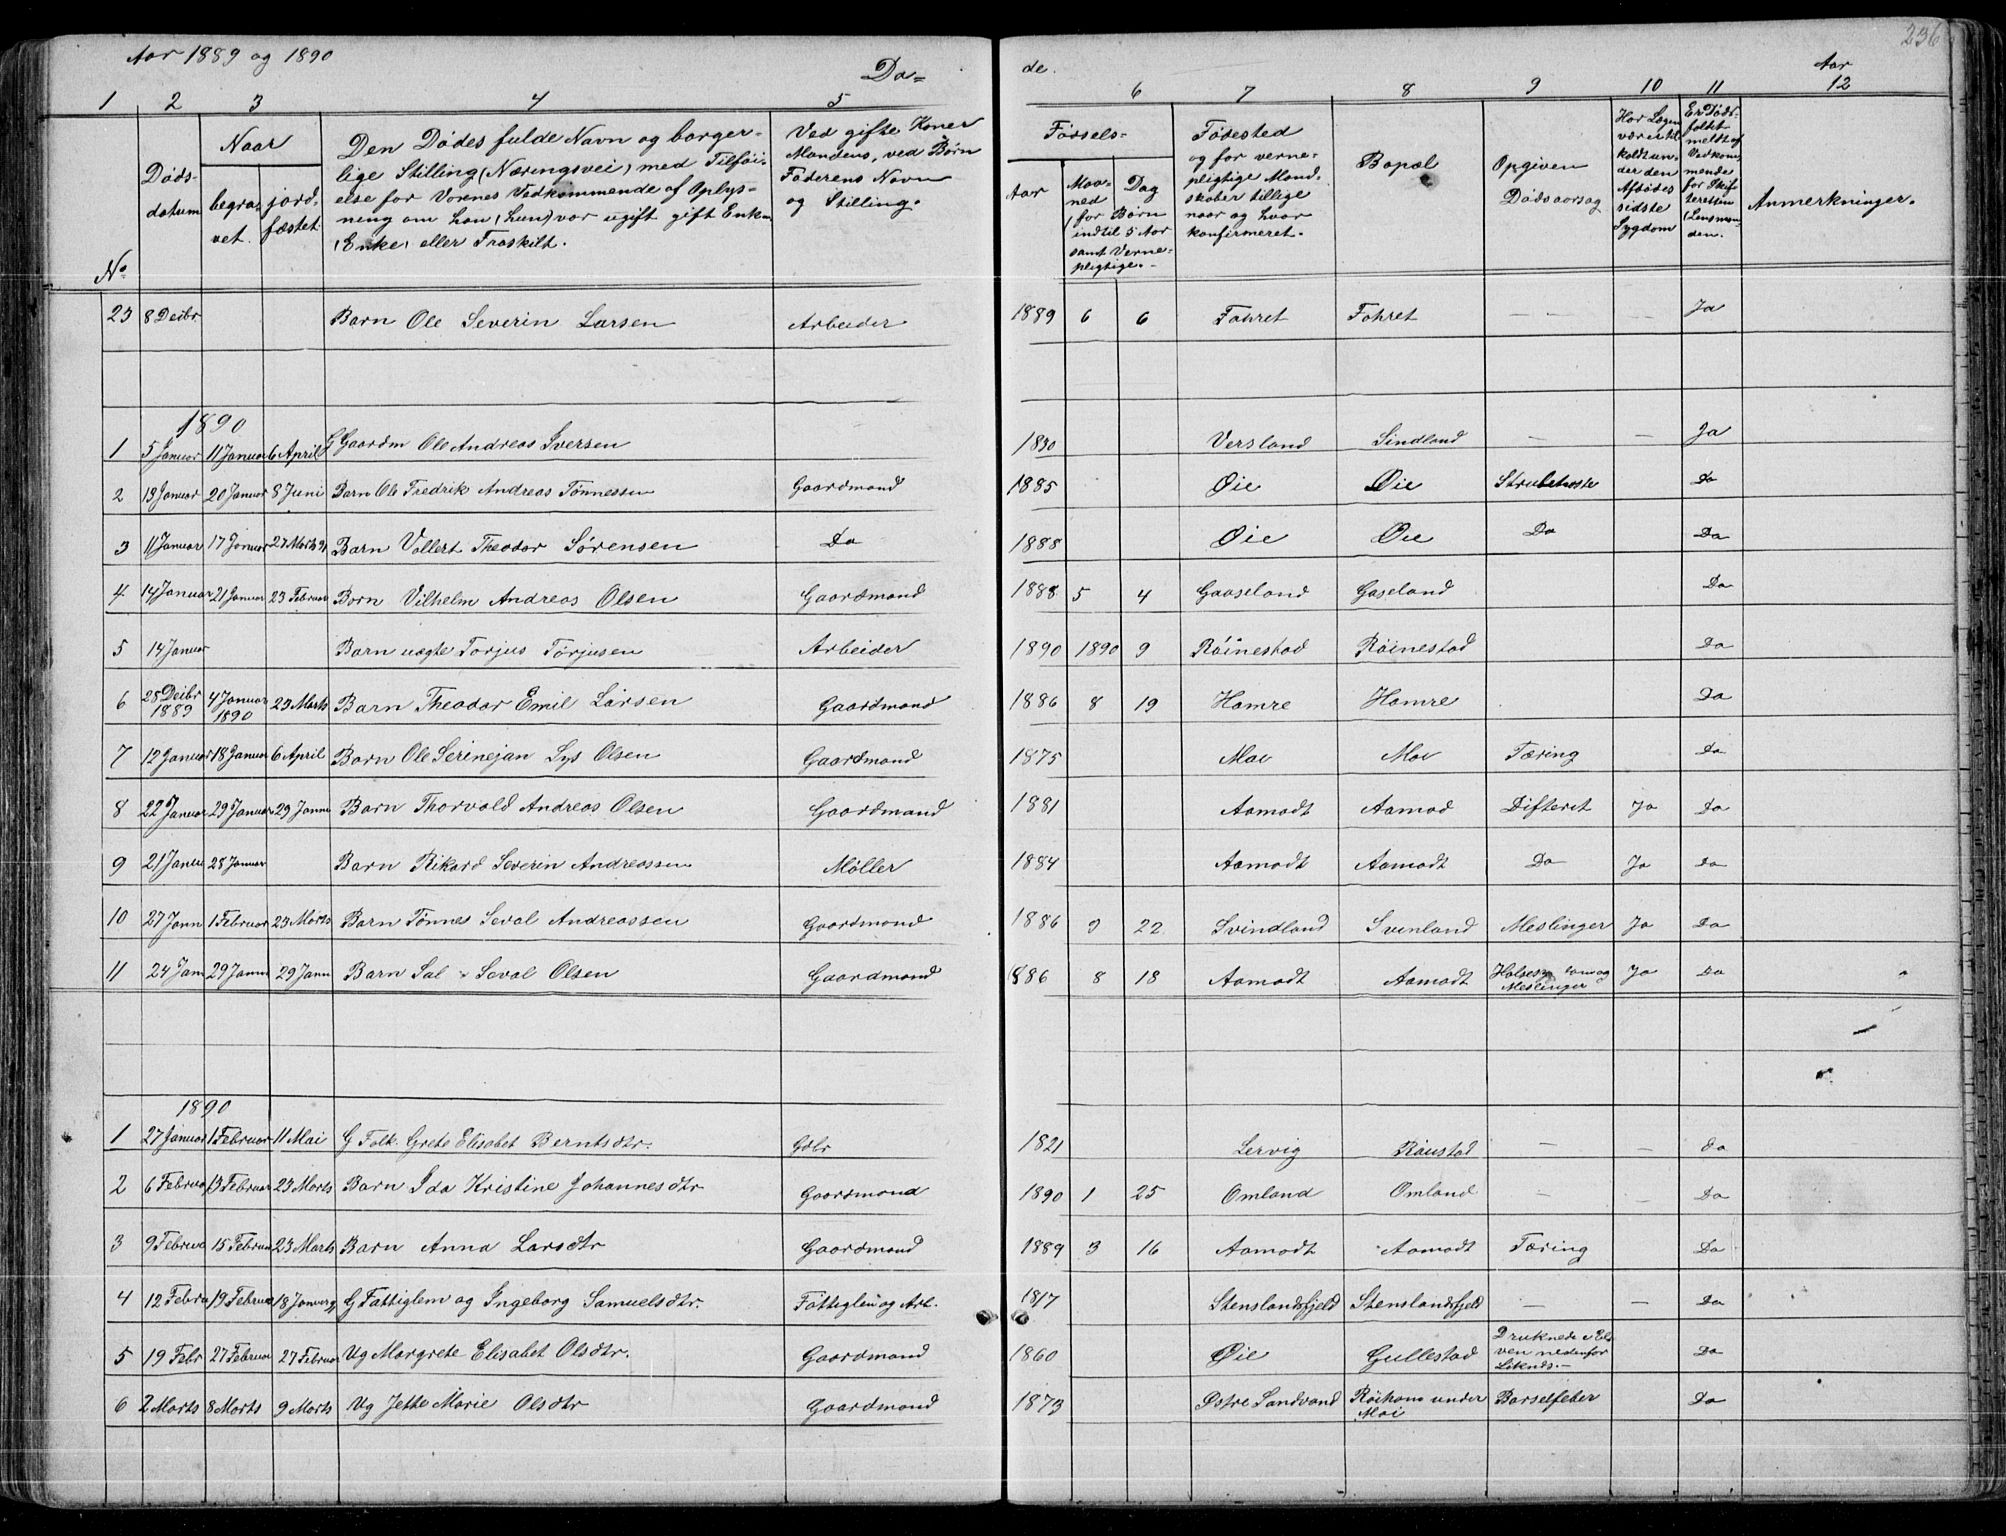 Aar 1889 og 1890
Dø=
de.
Aar
236
1 2 3 4 5 6 7 8 9 10 11 12
No
Døds-
datum
Naar
begra-
vet.
jord-
fæstet
Den Dødes fulde Navn og borger-
lige Stilling (Næringsvei) med Tilføi-
else for Voxnes Vedkommende af Oplys-
ning om han (hun) var ugift gift Enkm
(Enke) eller Fraskilt.
Ved gifte Koner
Mandens, ved Børn
Faderens Navn
og Stilling.
Fødsels-
Aar
Maa-
ned
Dag
(for Børn
indtil 5 Aar
samt Verne-
pligtige.-
Fødested
og for verne-
pligtige Mand-
skaber tillige
naar og hvor
konfirmeret.
Bopæl
Opgiven
Dødsaarsag
Har Lægen
været til-
kaldt un-
der den
Afdødes
sidste
Sygdom
Er Døds-
faldet
meldt af
Vedkom-
mende
for Skif-
teretten
(Lensman-
den.
Anmerkninger.
23 8 Deibr Barn Ole Severin Larsen Arbeider 1889 6 6 Fohret Fohret — — — Ja
1890
1 5 Januar 11 Januar 6 April G Gaardm Ole Andreas Iversen 1830 Versland Sindland — — Ja
2 13 Januar 20 Januar 8 Juni Barn Ole Fredrik Andreas Tønnessen Gaardmand 1885 Øie Øie Strubehoste Do
3 11 Januar 17 Januar 27 Marts 91 Barn Vollert Theodor Sørensen Do 1888 Øie Øie Do Do
4 14 Januar 21 Januar 23 Februar Barn Vilhelm Andreas Olsen Gaardmand 1888 5 4 Gaaseland Gaseland Do
5 14 Januar Barn uægte Torjus Tørjusen Arbeider 1890 1890 9 Røinestad Røinestad Do
6 28 Deibr 1889 4 Januar 1890 23 Marts Barn Theodor Emil Larsen Gaardmand 1886 8 19 Hamre Hamre Do
7 12 Januar 18 Januar 6 April Barn Ole Serinejan Lys Olsen Gaardmand 1875 Moi Moi Tæring Do
8 22 Januar 29 Januar 29 Janu Barn Thorvald Andreas Olsen Gaardmand 1881 Aamodt Aamod Difterit Ja Do
9 21 Janua 28 Januar Barn Rikard Severin Andreassen Møller 1884 Aamodt Aamodt Do Ja Do
10 27 Jann 1 Februar 23 Marts Barn Tønnes Seval Andreassen Gaardmand 1886 9 22 Svindland Svinland Meslinger Ja Do
11 24 Jan 29 Janua 29 Jann Barn Sal Seval Olsen Gaardmand 1886 8 18 Aamodt Aamodt Halsesyg og Meslinger Ja Do
1890
1 27 Januar 1 Februar 11 Mai G Folk. Grete Elisabet Berntsdtr. Gdbr 1821 Lervig Røistad — — Do
2 6 Februa 13 Februar 23 Marts Barn Ida Kristine Johannesdtr Gaardmand 1890 1 25 Omland Omland — — Do
3 9 Februa 15 Februa 23 Marts Barn Anna Larsdtr Gaardmand 1889 3 16 Aamodt Aamodt Tæring Do
4 12 Febru 19 Februa 18 Januar 91 G Fattiglem og Ingeborg Samuelsdtr. Fattiglem og Arb. 1817 Stenslandsfjeld Stenslandsfjeld — — Do
5 19 Febr 27 Februa 27 Februar Ug Margrete Elisabet Olsdtr. Gaardmand 1860 Øie Gullestad Druknede i El-
ven nedenfor
Liknes.- Do
6 2 Marts 8 Marts 9 Marts Ug Jette Marie Olsdtr Gaardmand 1873 Østre Sandvand Røikom under Moi Barselfeber Do